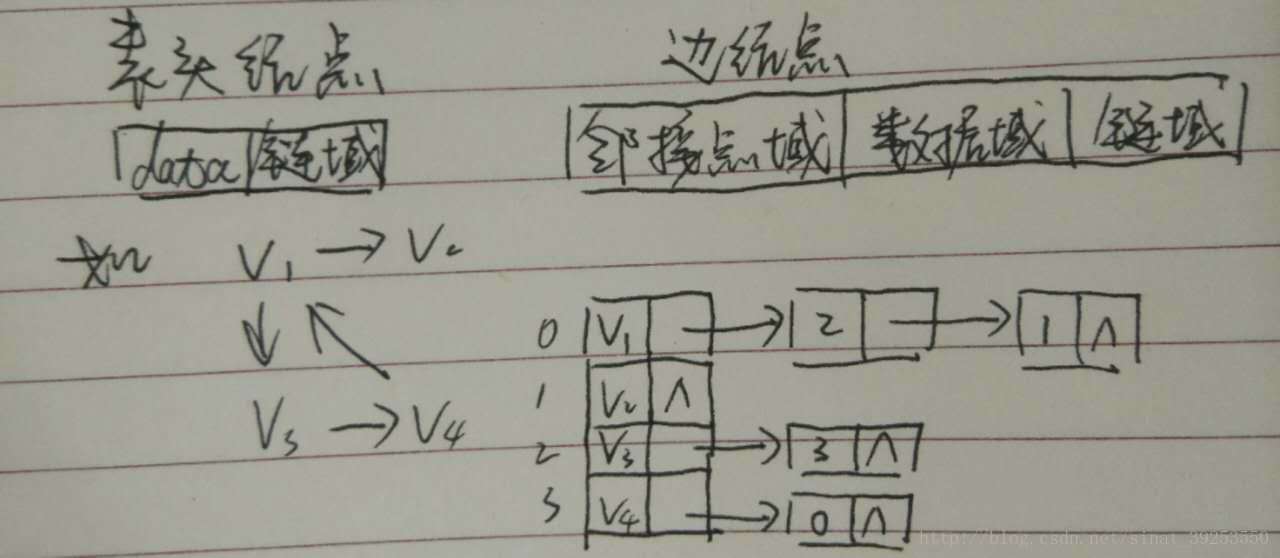 表头结点 边结点
data 链域 邻接点域 数据域 链域
如 V₁ → V₂
↓ ↖
0 V₁ → 2 → 1 ∧
1 V₂ ∧
V₃ → V₄
2 V₃ → 3 ∧
3 V₄ → 0 ∧
http://blog.csdn.net/sinat_39253550